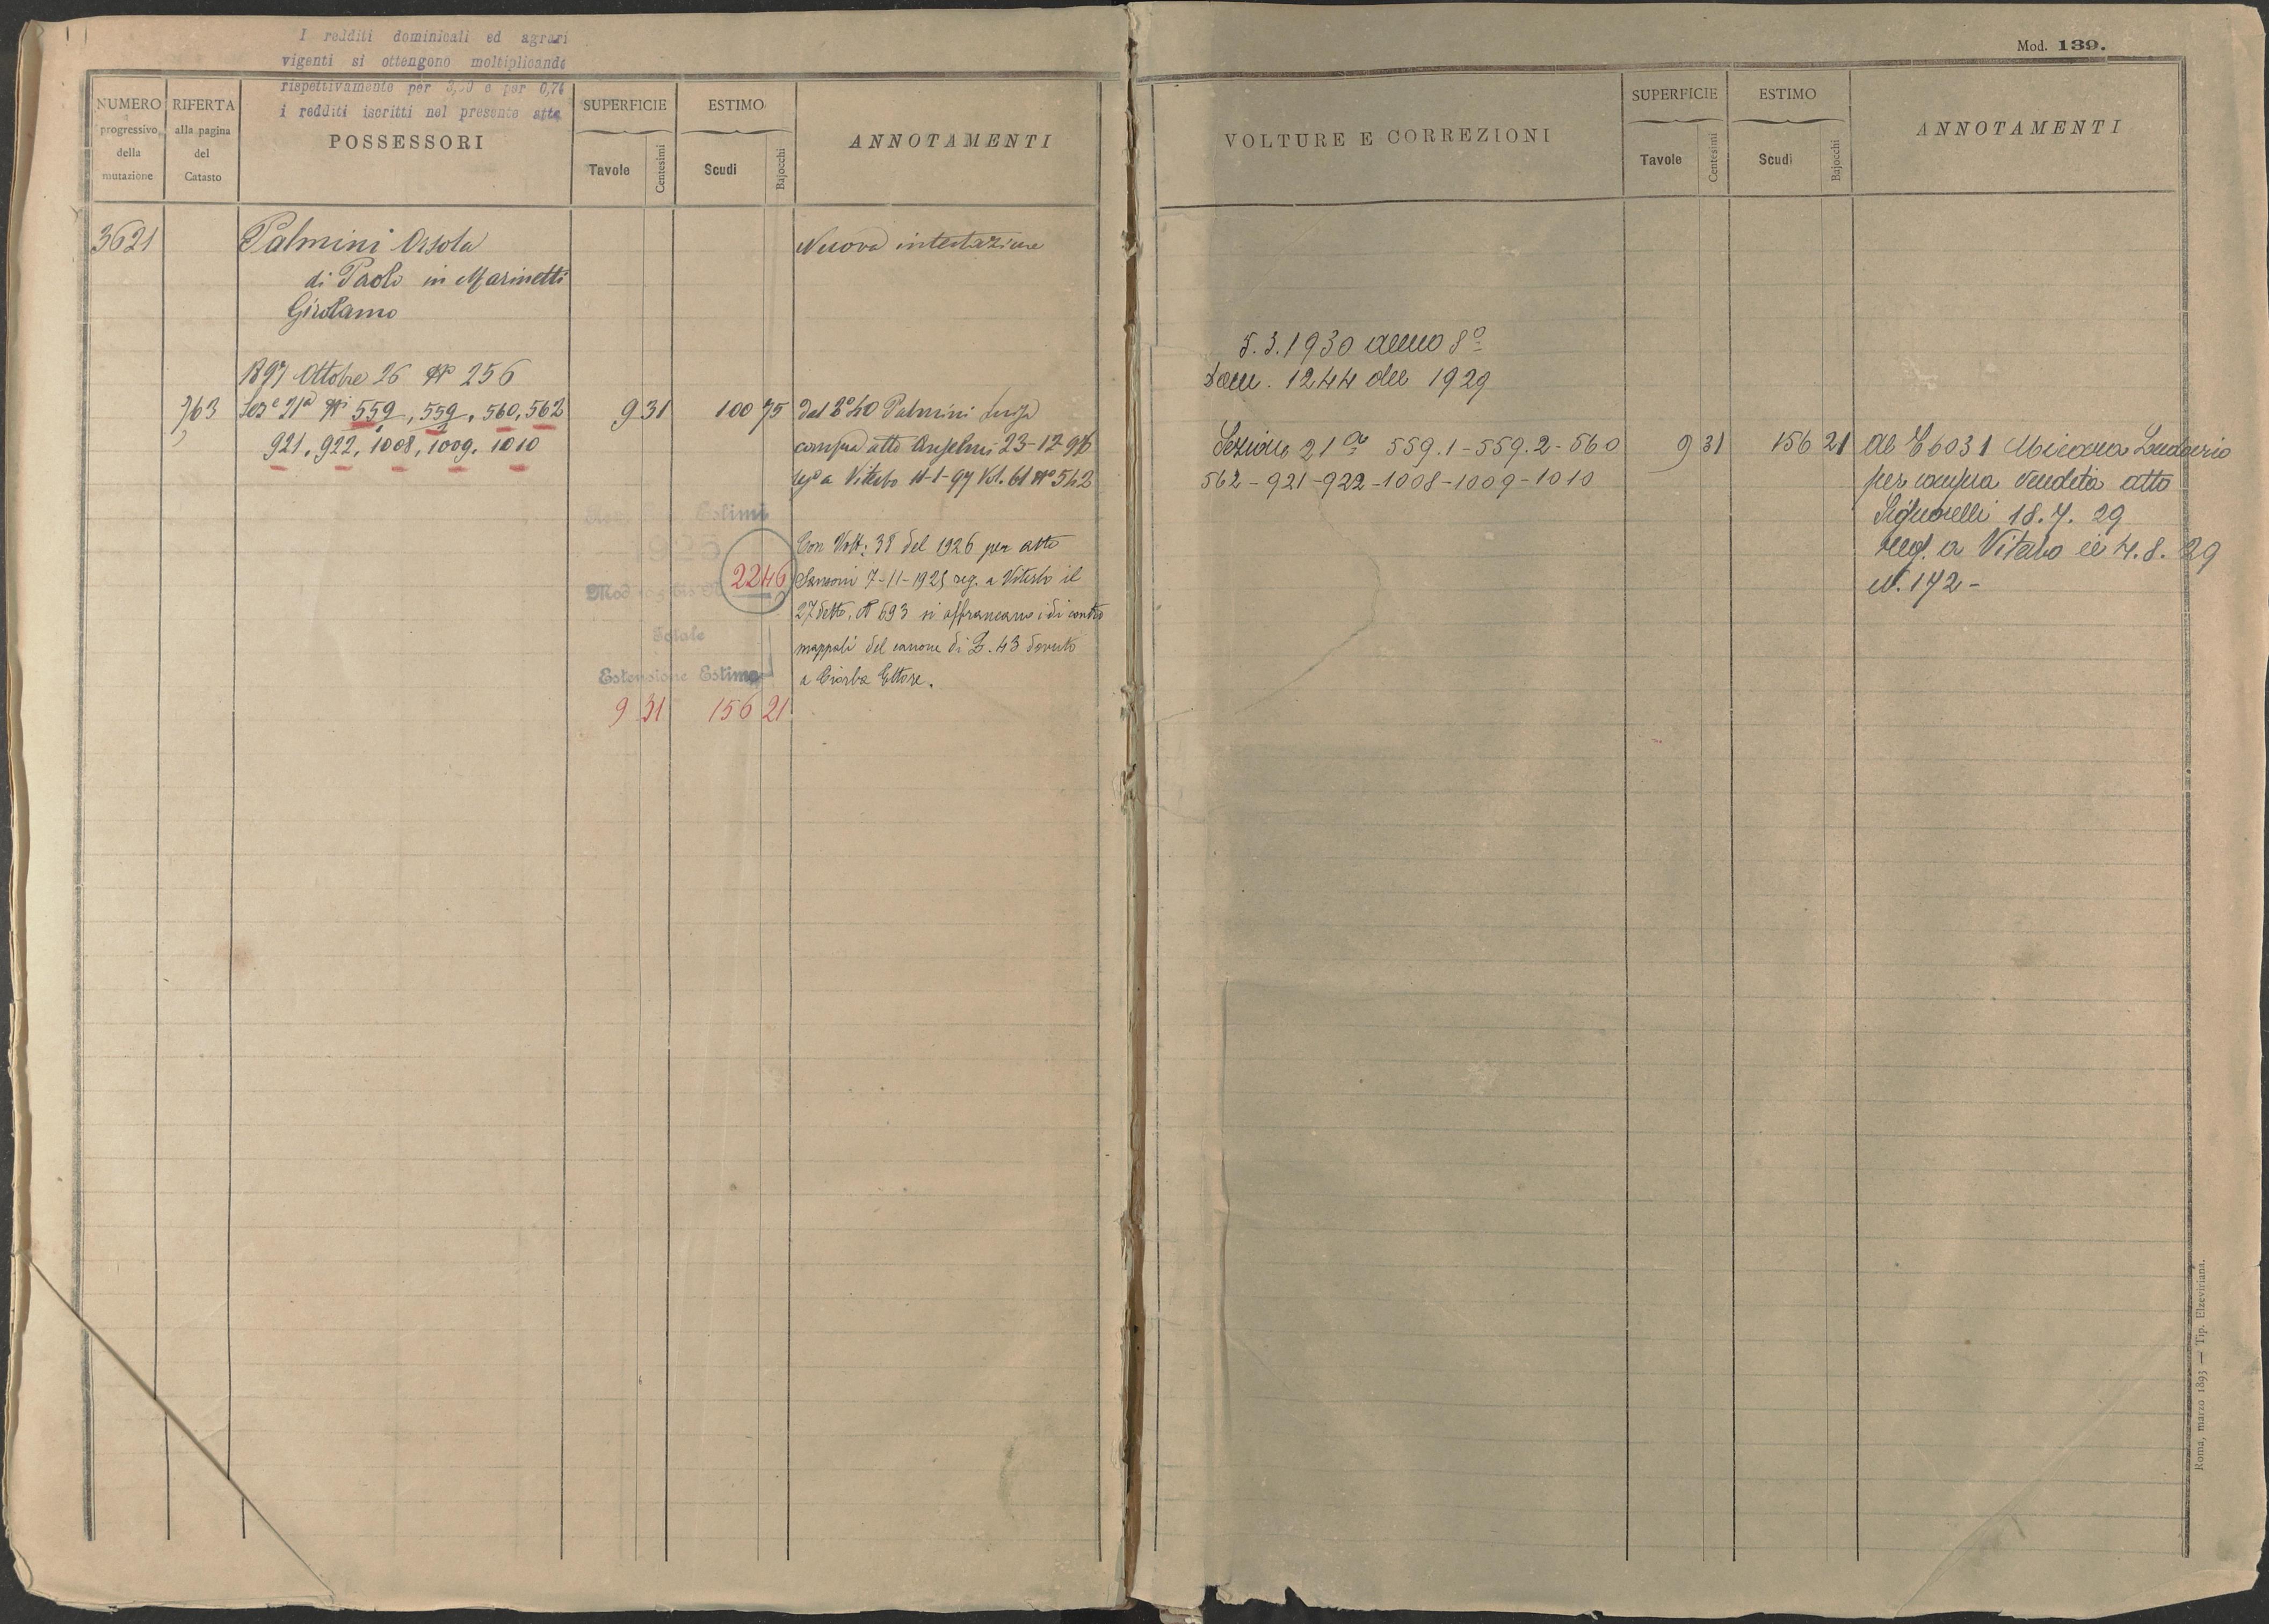 I redditi dominicali ed agrari
vigenti si ottengono moltiplicando
rispettivamente per e per 0,74
i redditi iscritti nel presente atto
NUMERO
progressivo
della
mutazione
RIFERTA
alla pagina
del
Catasto
POSSESSORI
SUPERFICIE
Tavole
Centesimi
ESTIMO
Scudi
Bajocchi
ANNOTAMENTI
3621
Palmini Orsola
di Paolo in Marinetti
Girolamo
Nuova intestazione
1897 Ottobre 26 N° 256
763
Sez.e 21a Ni 559/1, 559/2, 560, 562
921, 922, 1008, 1009, 1010
9 31
100 75
dal 2° 40 Palmini Luigi
compra atto Anselmi 23-12-96
reg° a Viterbo 11-1-97 Vol. 61 N° 542
Estimi
1925
Mod.
2246
Totale
Estensione Estimo
9 31 156 21
Con Volt: 38 del 1926 per atto
Sansoni 7-11-1925 reg. a Viterbo il
27 detto, N 693 si affrancano i di contro
mappali del canone di L. 43 dovuto
a Ciorba Ettore.
Mod. 139.
VOLTURE E CORREZIONI
SUPERFICIE
Tavole
Centesimi
ESTIMO
Scudi
Bajocchi
ANNOTAMENTI
5.3.1930 anno 8°
Dom. 1244 del 1929
Sezione 21a 559.1-559.2-560
562-921-922-1008-1009-1010
9 31
156 21
al 6031 Micara
per compra vendita atto
Signorelli 18.7.29
reg. a Viterbo il 4.8.29
N. 172-
Roma, marzo 1893 — Tip. Elzeviriana.